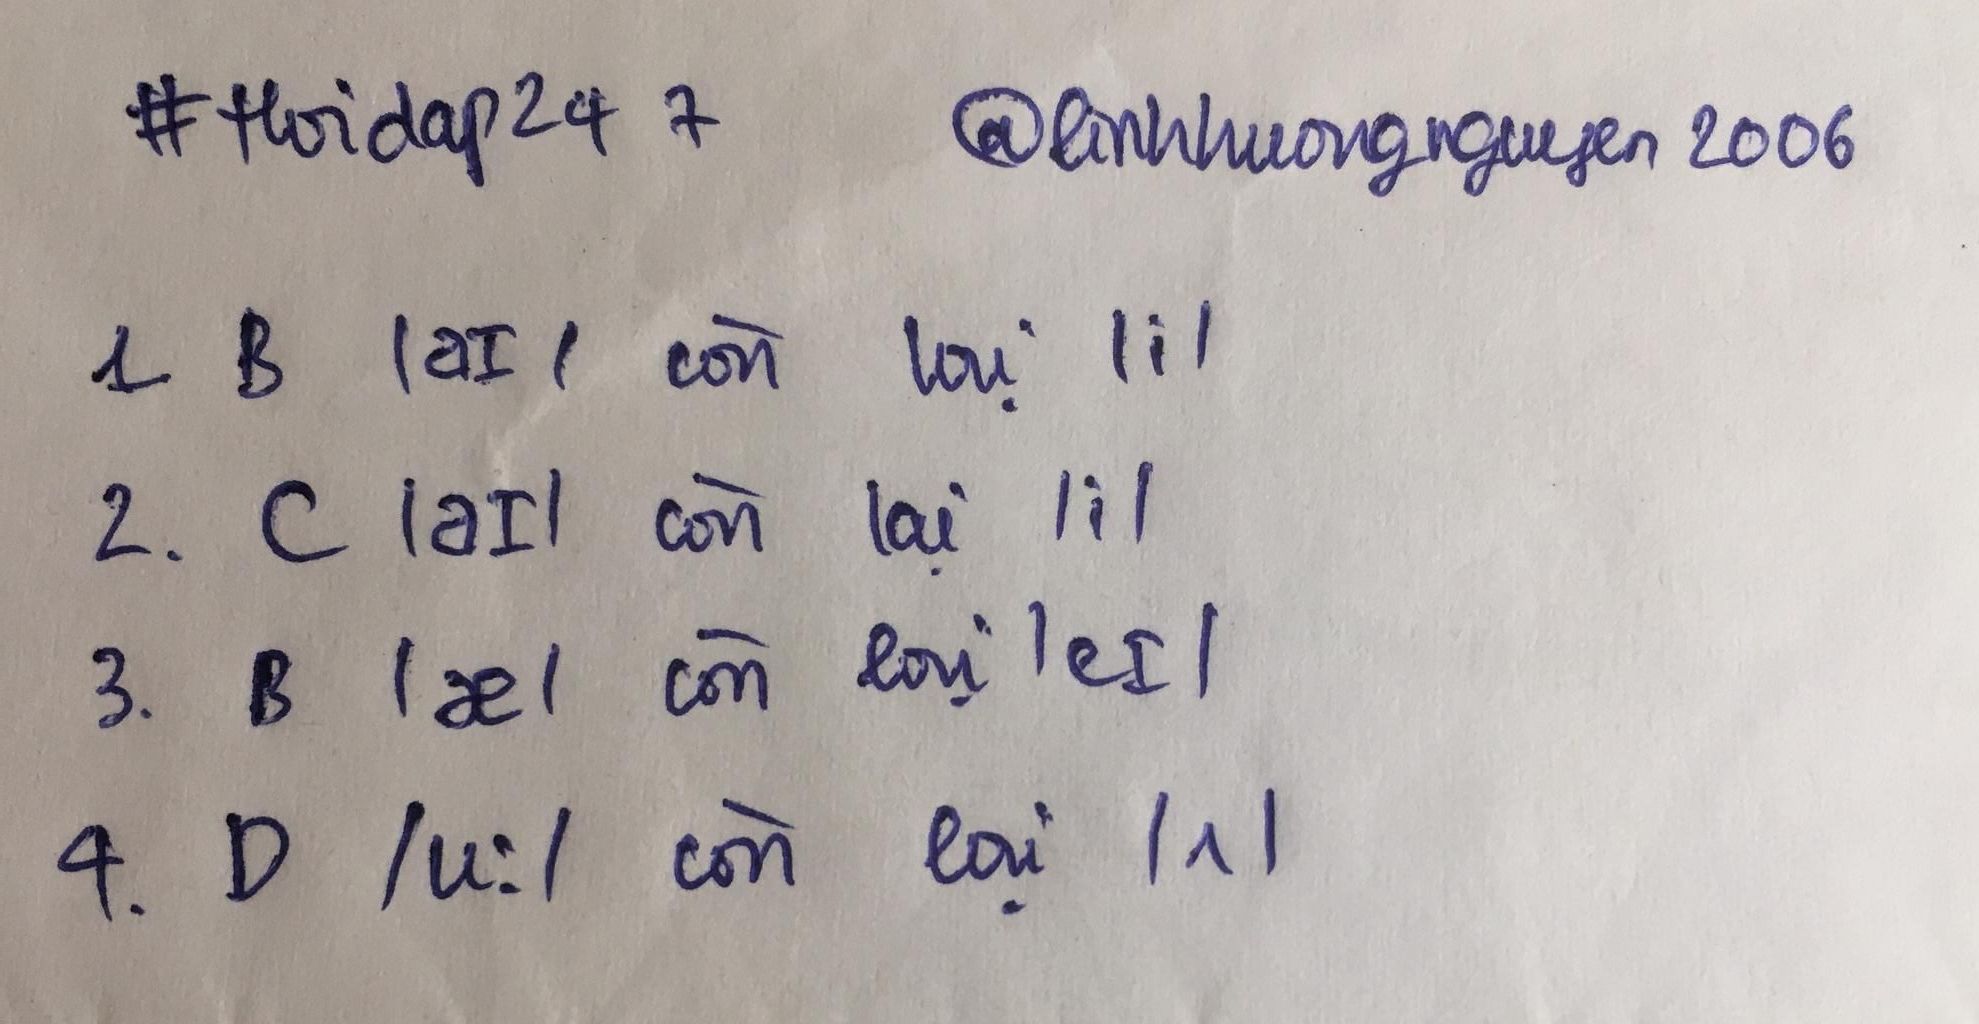 #Hoidap247 @linhhuongnguyen2006
1 B /aI/ còn lại /i/
2. C /aI/ còn lại /i/
3. B /æ/ còn lại /eI/
4. D /u:/ còn lại /ʌ/